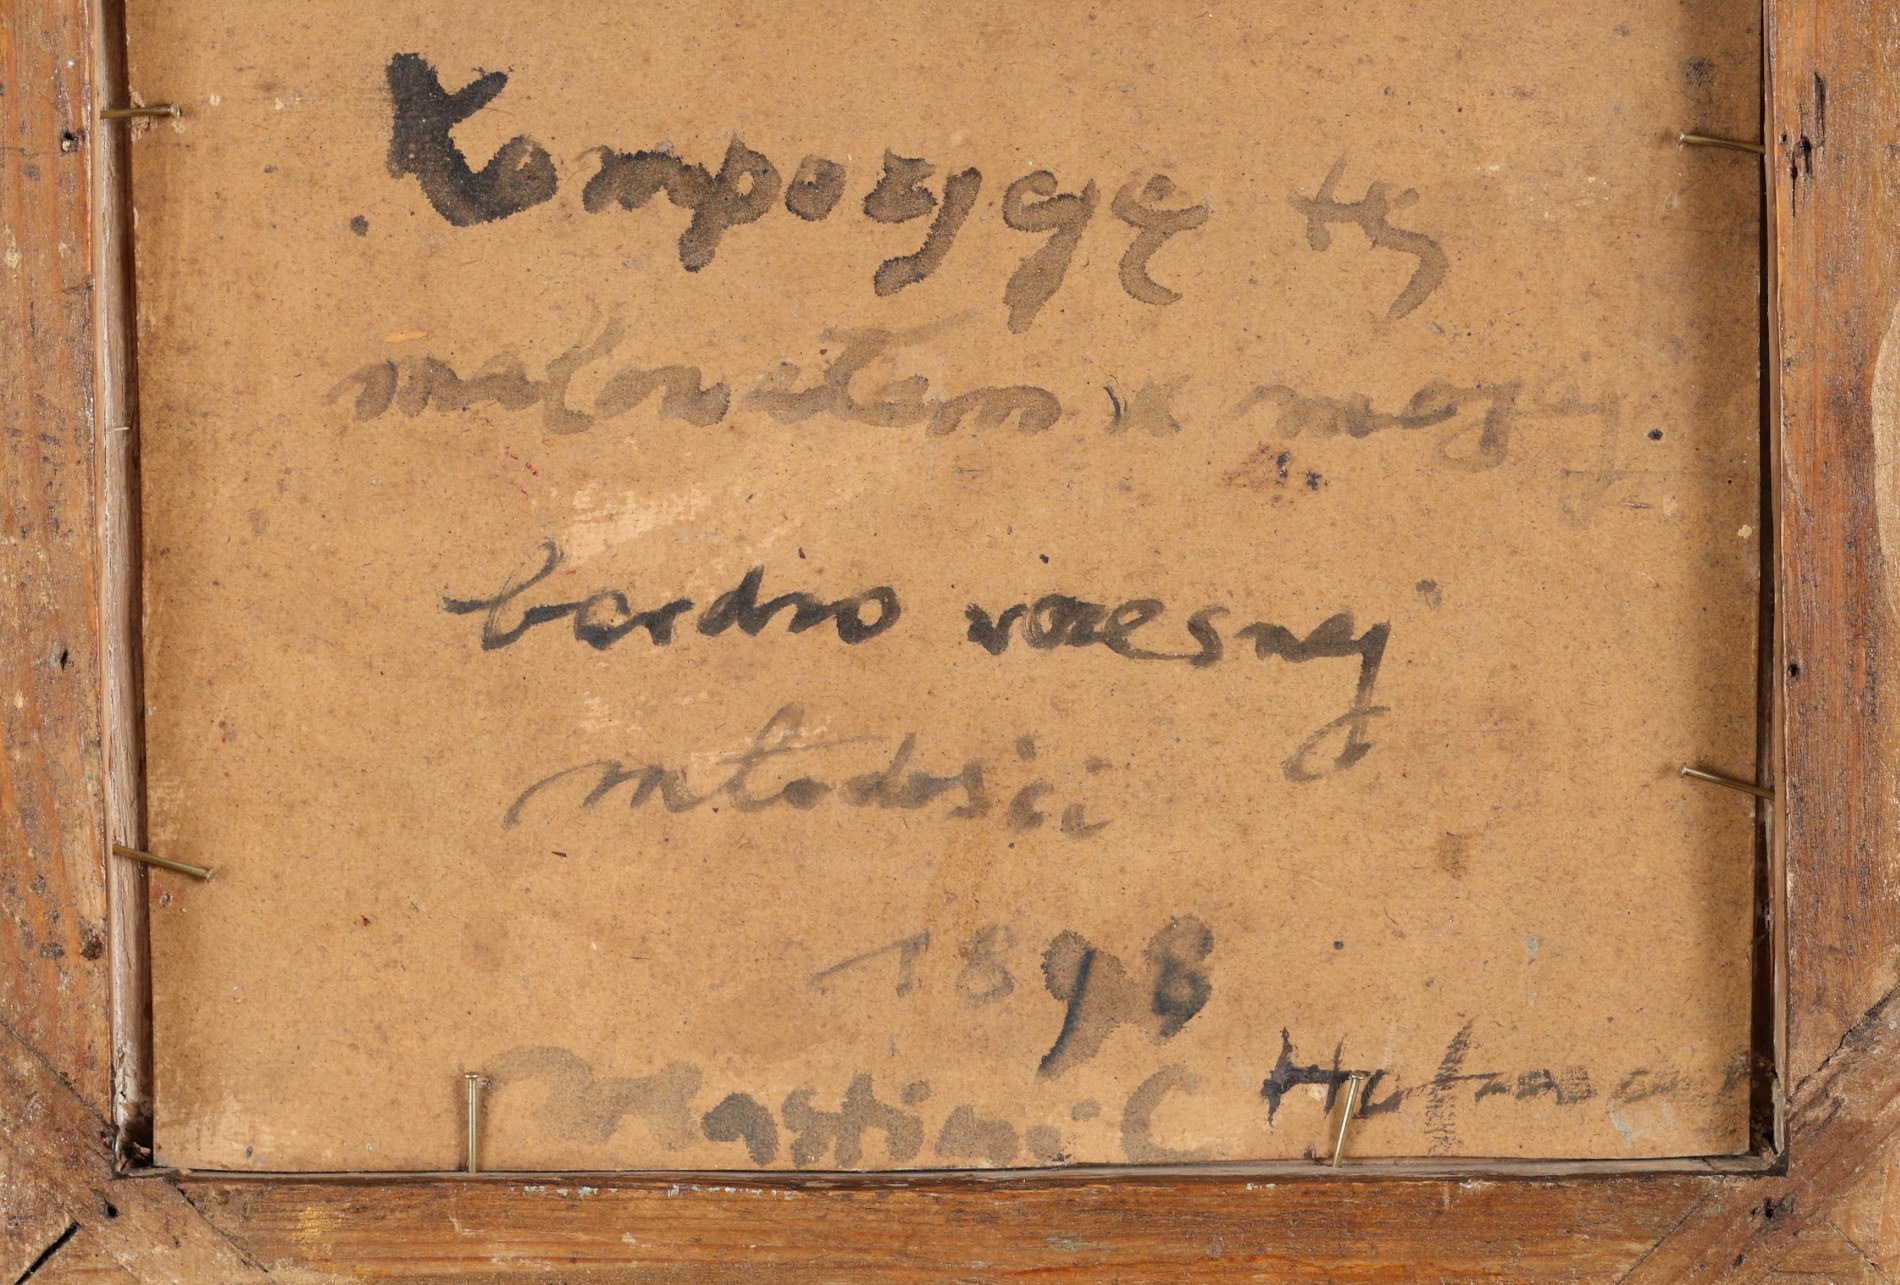 Kompozycję tę
malowałem w mojej
bardzo wczesnej
młodości
1898
Wlastimil Hofman